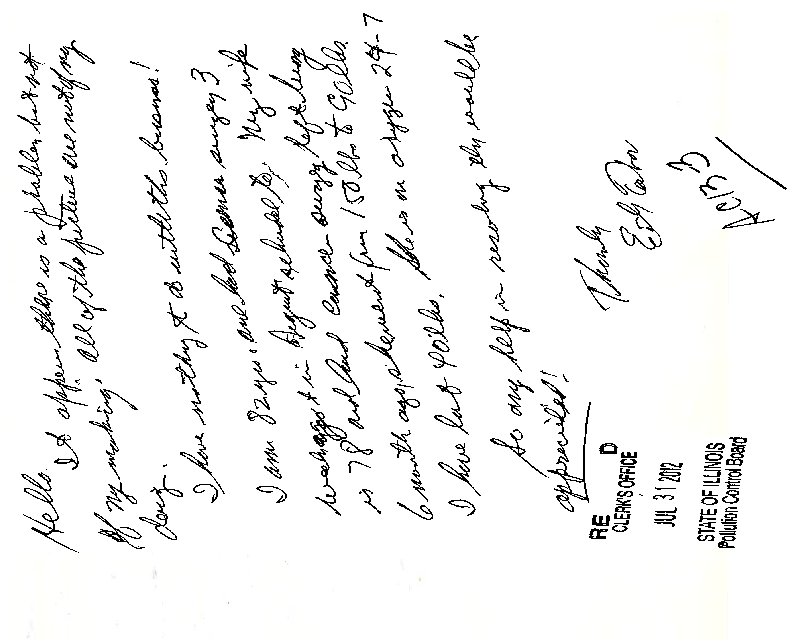 Hello.
It appears there is a problem but not
of my making. All of the pictures are not of my
doing.
I have nothing to do with this business!
I am 82 yrs. and had surgery 3
weeks ago in August My wife
is 78 and had cancer surgery left lung
6 month ago, she went from 150 lbs to 90 lbs.
I have lost 40 lbs. She is on oxygen 24-7
So any help in resolving this would be
appreciated!
Thanks
Ed
AC 13-3
RE D
CLERK'S OFFICE
JUL 31 2012
STATE OF ILLINOIS
Pollution Control Board